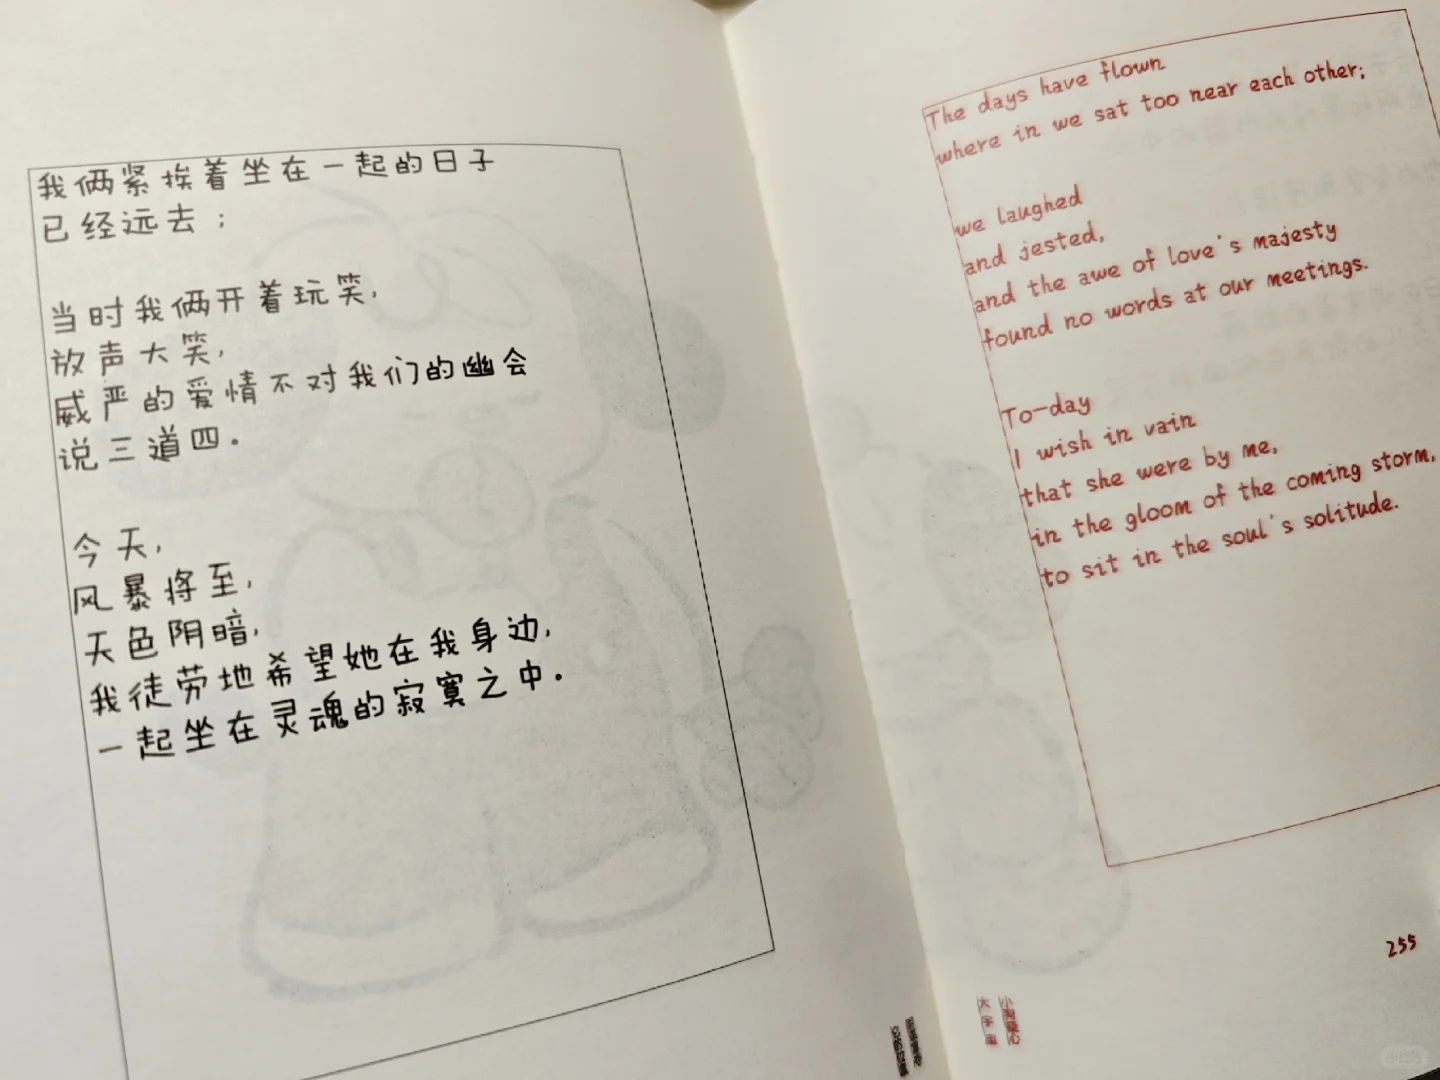 我俩紧挨着坐在一起的日子
已经远去；
当时我俩开着玩笑，
放声大笑，
威严的爱情不对我们的幽会
说三道四。
今天，
风暴将至，
天色阴暗，
我徒劳地希望她在我身边，
一起坐在灵魂的寂寞之中。
The days have flown
where in we sat too near each other;
we laughed
and jested,
and the awe of love's majesty
found no words at our meetings.
To-day
I wish in vain
that she were by me,
in the gloom of the coming storm,
to sit in the soul's solitude.
255